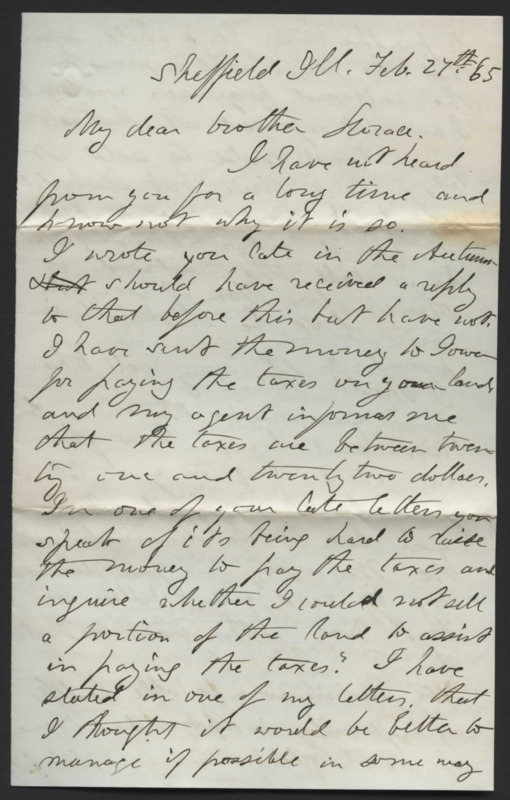 Sheffield Ill. Feb. 27th 65
My dear brother Horace.
I have not heard
from you for a long time and
know not why it is so.
I wrote you late in the Autumn
should have received a reply
to that before this but have not.
I have sent the money to Iowa
for paying the taxes on your land
and my agent informs me
that the taxes are between twen-
ty one and twenty two dollars.
In one of your late letters you
speak of its being hard to raise
the money to pay the taxes and
inquire whether I could not sell
a portion of the land to assist
in paying the taxes." I have
stated in one of my letters, that
I thought it would be better to
manage if possible in some way